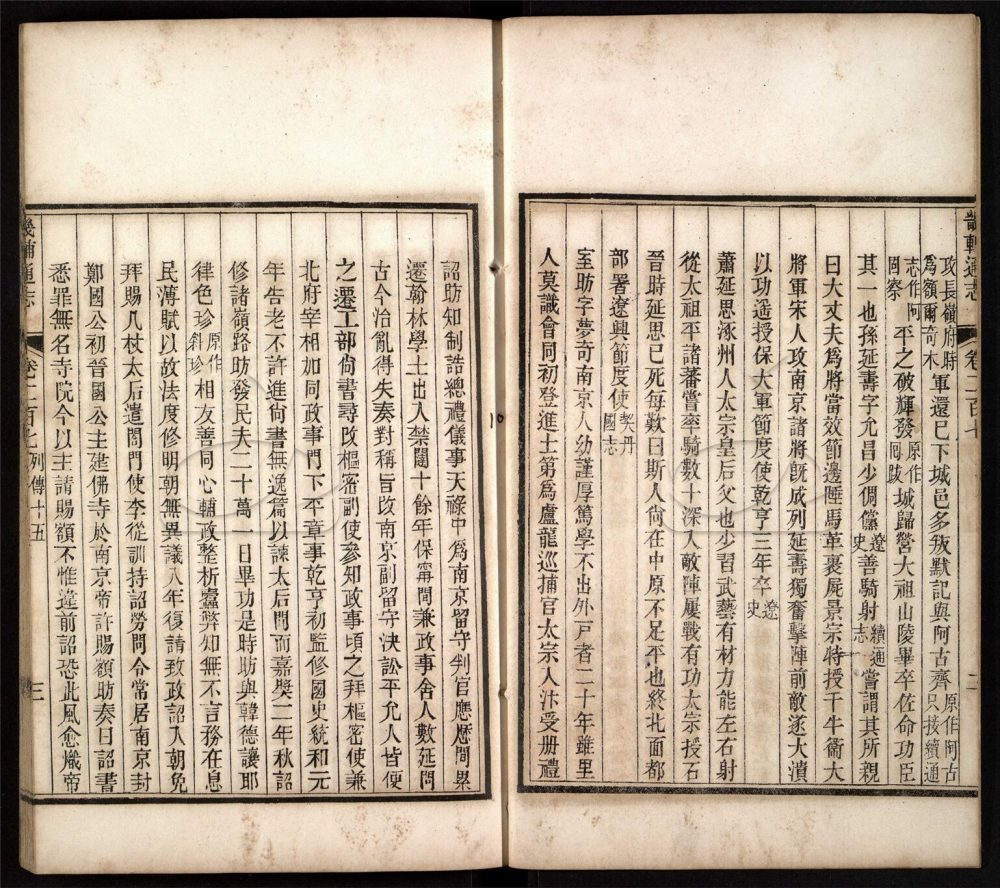 畿輔通志 卷二百七 二
攻長嶺府時為額爾奇木軍還已下城邑多叛默記與阿古齊原作阿古只按續通
志作阿罔察平之破輝發原作囘跋城歸營大祖山陵畢卒佐命功臣
其一也孫延壽字允昌少倜儻遼史善騎射續通志嘗謂其所親
曰大丈夫爲將當效節邊陲馬革裹屍景宗特授千牛衞大
將軍宋人攻南京諸將旣成列延壽獨奮擊陣前敵遂大潰
以功遙授保大軍節度使乾亨三年卒遼史
蕭延思涿州人太宗皇后父也少習武藝有材力能左右射
從太祖平諸蕃嘗率騎數十深入敵陣屢戰有功太宗授石
晉時延思已死每歎曰斯人尙在中原不足平也終北面都
部署遼興節度使契丹國志
室昉字夢奇南京人幼謹厚篤學不出外戸者二十年雖里
人莫識會同初登進士第爲盧龍巡捕官太宗入汴受册禮
詔昉知制誥總禮儀事天祿中爲南京留守判官應歷間累
遷翰林學士出入禁闥十餘年保寧間兼政事舍人數延問
古今治亂得失奏對稱旨改南京副留守決訟平允人皆便
之遷工部尙書尋改樞密副使參知政事頃之拜樞密使兼
北府宰相加同政事門下平章事乾亨初監修國史統和元
年告老不許進尙書無逸篇以諫太后聞而嘉獎二年秋詔
修諸嶺路昉發民夫二十萬一日畢功是時昉與韓德讓耶
律色珍原作斜珍相友善同心輔政整析蠹弊知無不言務在息
民薄賦以故法度修明朝無異議八年復請致政詔入朝免
拜賜几杖太后遣閤門使李從訓持詔勞問令常居南京封
鄭國公初晉國公主建佛寺於南京帝許賜額昉奏曰詔書
悉罪無名寺院今以主請賜額不惟違前詔恐此風愈熾帝
畿輔通志 卷二百七 列傳十五 三